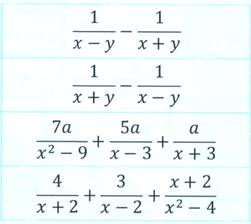 \frac{1}{x-y} - \frac{1}{x+y}
\frac{1}{x+y} - \frac{1}{x-y}
\frac{7a}{x^2-9} + \frac{5a}{x-3} + \frac{a}{x+3}
\frac{4}{x+2} + \frac{3}{x-2} + \frac{x+2}{x^2-4}